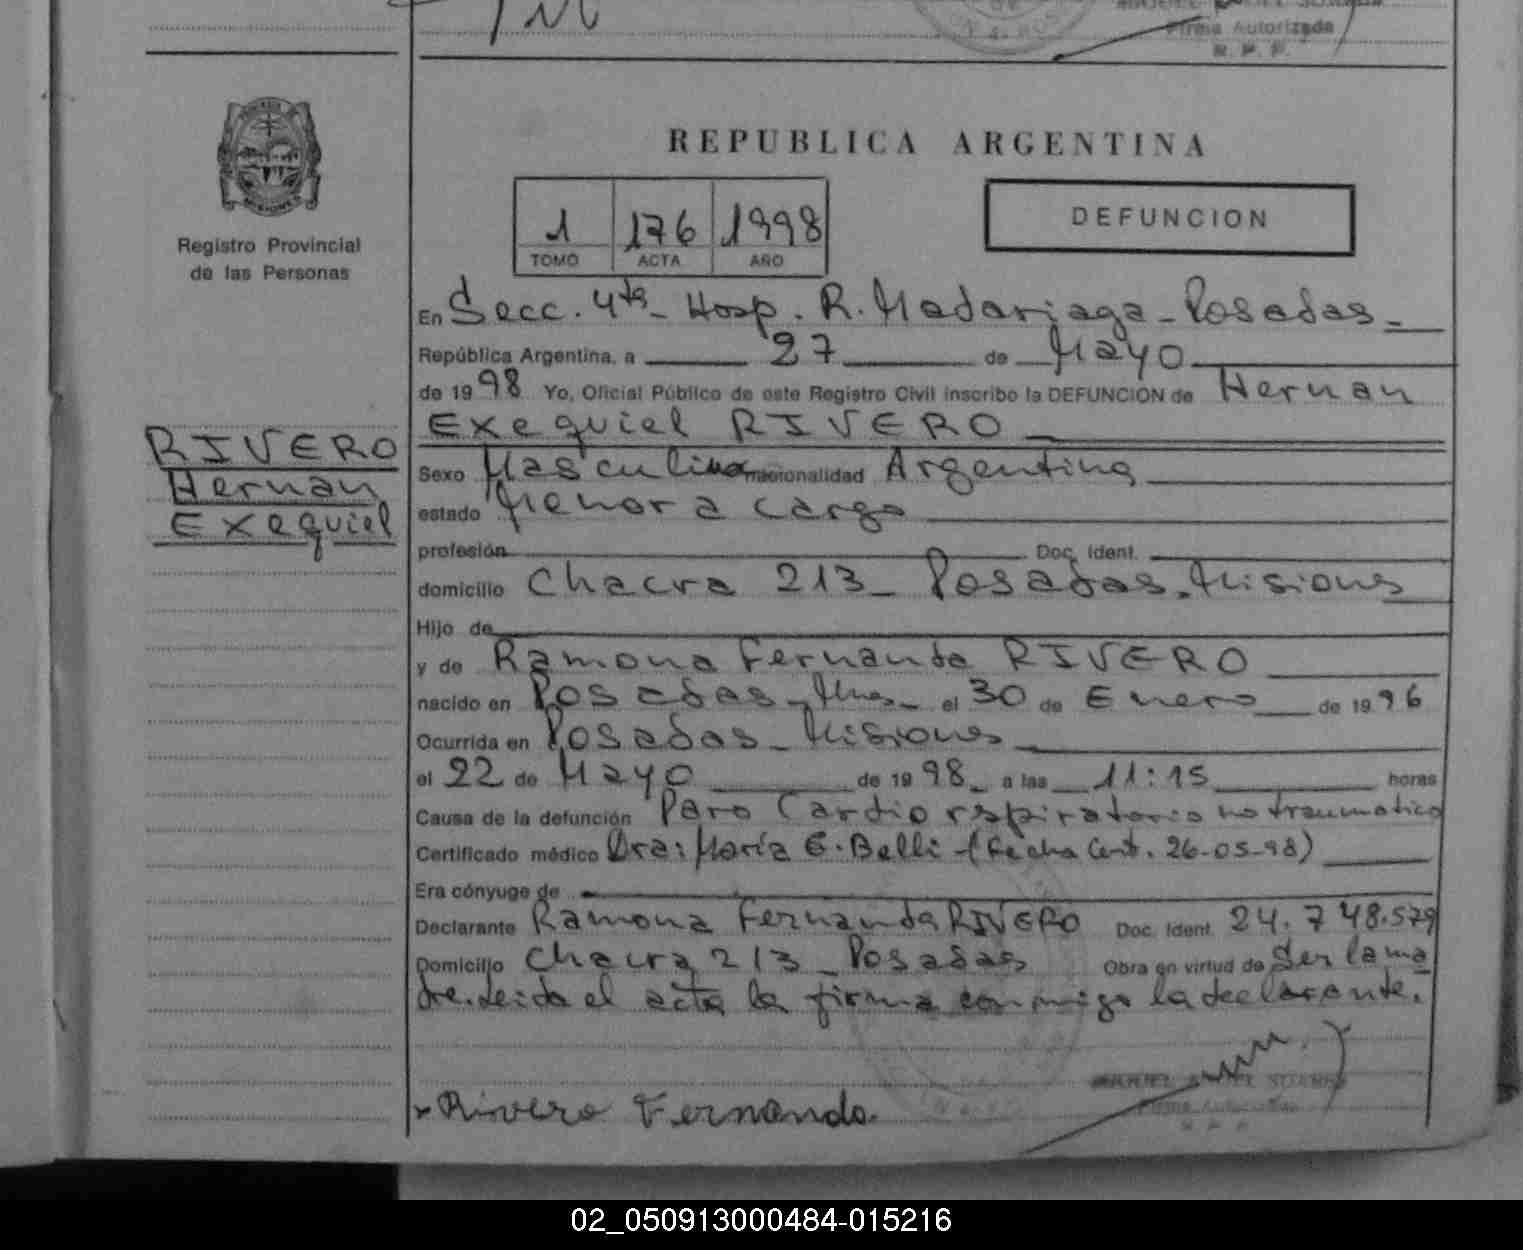 Firma Autorizada
R. P. P.
REPUBLICA ARGENTINA
Registro Provincial
de las Personas
1 176 1998
TOMO ACTA AÑO
DEFUNCION
En Secc. 4ta - Hosp. R. Madariaga - Posadas -
República Argentina, a 27 de Mayo
de 1998 Yo, Oficial Público de este Registro Civil inscribo la DEFUNCION de Hernan
Exequiel RIVERO
RIVERO
Hernan
Exequiel
Sexo Masculino nacionalidad Argentina
estado Menor a cargo
profesión Doc. Ident.
domicilio Chacra 213 - Posadas - Misiones
Hijo de
y de Ramona Fernanda RIVERO
nacido en Posadas - Mnes - el 30 de Enero de 1996
Ocurrida en Posadas - Misiones
el 22 de Mayo de 1998 a las 11:15 horas
Causa de la defunción Paro Cardio respiratorio no traumatico
Certificado médico Dra: María E. Belli - (Fecha Cert. 26-05-98)
Era cónyuge de
Declarante Ramona Fernanda RIVERO Doc. Ident. 24.748.579
Domicilio Chacra 213 - Posadas Obra en virtud de Ser la ma
dre. Leida el acta la firma conmigo la declarante.
Rivero Fernanda.
02_050913000484-015216